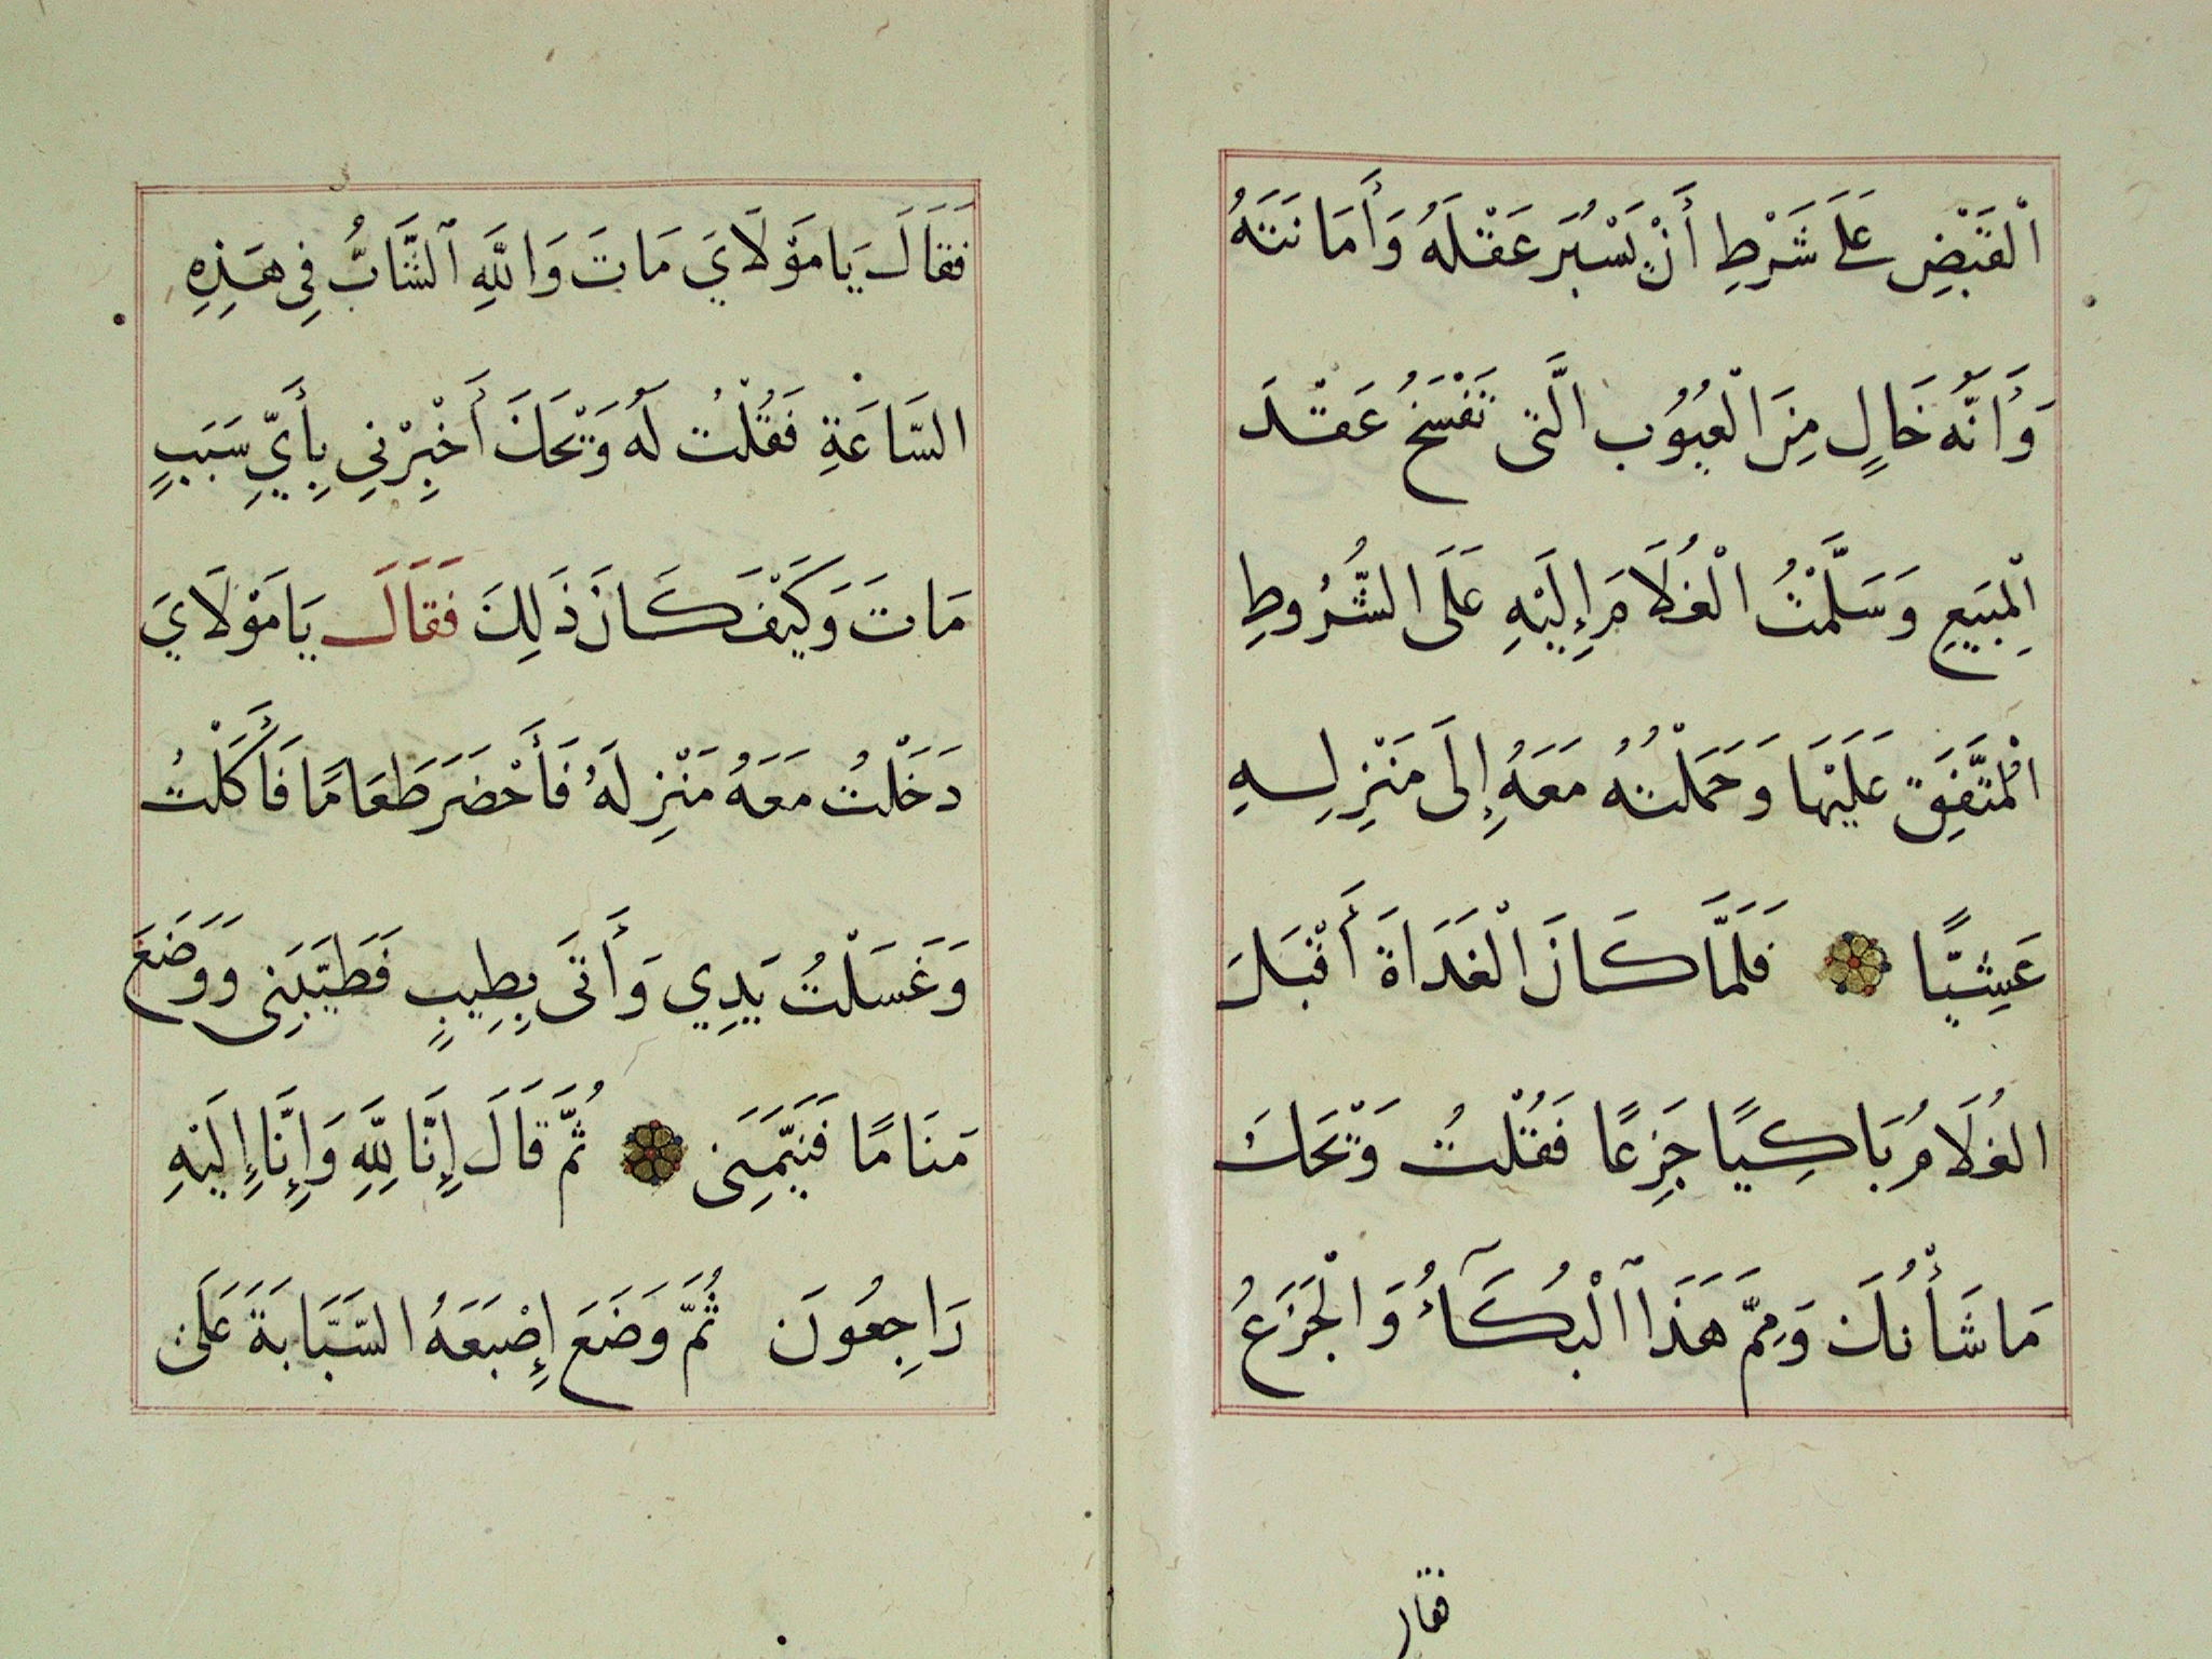 الْقَبْضِ عَلَى شَرْطِ أَنْ يَسْبُرَ عَقْلَهُ وَأَمَانَتَهُ
وَأَنَّهُ خَالٍ مِنَ الْعُيُوُبِ الَّتى تَفْسَخُ عَقْدَ
الْمَبَيعِ وَسَلَّمْتُ الْغُلَامَ إِلَيْهِ عَلَى الشُّرُوطِ
الْمُتَّفَقِ عَلَيْهَا وَحَمَلْتُهُ مَعَهُ إِلَى مَنْزِلِهِ
عَشِيًّا فَلَمَّا كَانَ الْغَدَاةَ أَقْبَلَ
الغُلَامُ بَاكِيًا جَزِعًا فَقُلْتُ وَيْحَكَ
مَا شَأْنُكَ وَمِمَّ هَذَا ٱلْبُكَآءُ وَالْجَزَعُ
فقال
فَقَالَ يَا مَوْلَايَ مَاتَ وَاللَّهِ ٱلشَّابُّ فِى هَذِهِ
السَّاعَةِ فَقُلْتُ لَهُ وَيْحَكَ أَخْبِرْنِي بِأَيِّ سَبَبٍ
مَاتَ وَكَيْفَ كَانَ ذَلِكَ فَقَالَ يَا مَوْلَايَ
دَخَلْتُ مَعَهُ مَنْزِلَهُ فَأَحْضَرَ طَعَامًا فَأَكَلْتُ
وَغَسَلْتُ يَدِي وَأَتَى بِطِيبٍ فَطَيَّبَنِى وَوَضَعَ
مَنَامًا فَنَيَّمَنِى ثُمَّ قَالَ إِنَّا لِلَّهِ وَإِنَّا إِلَيْهِ
رَاجِعُونَ ثُمَّ وَضَعَ إِصْبَعَهُ السَّبَّابَةَ عَلَى